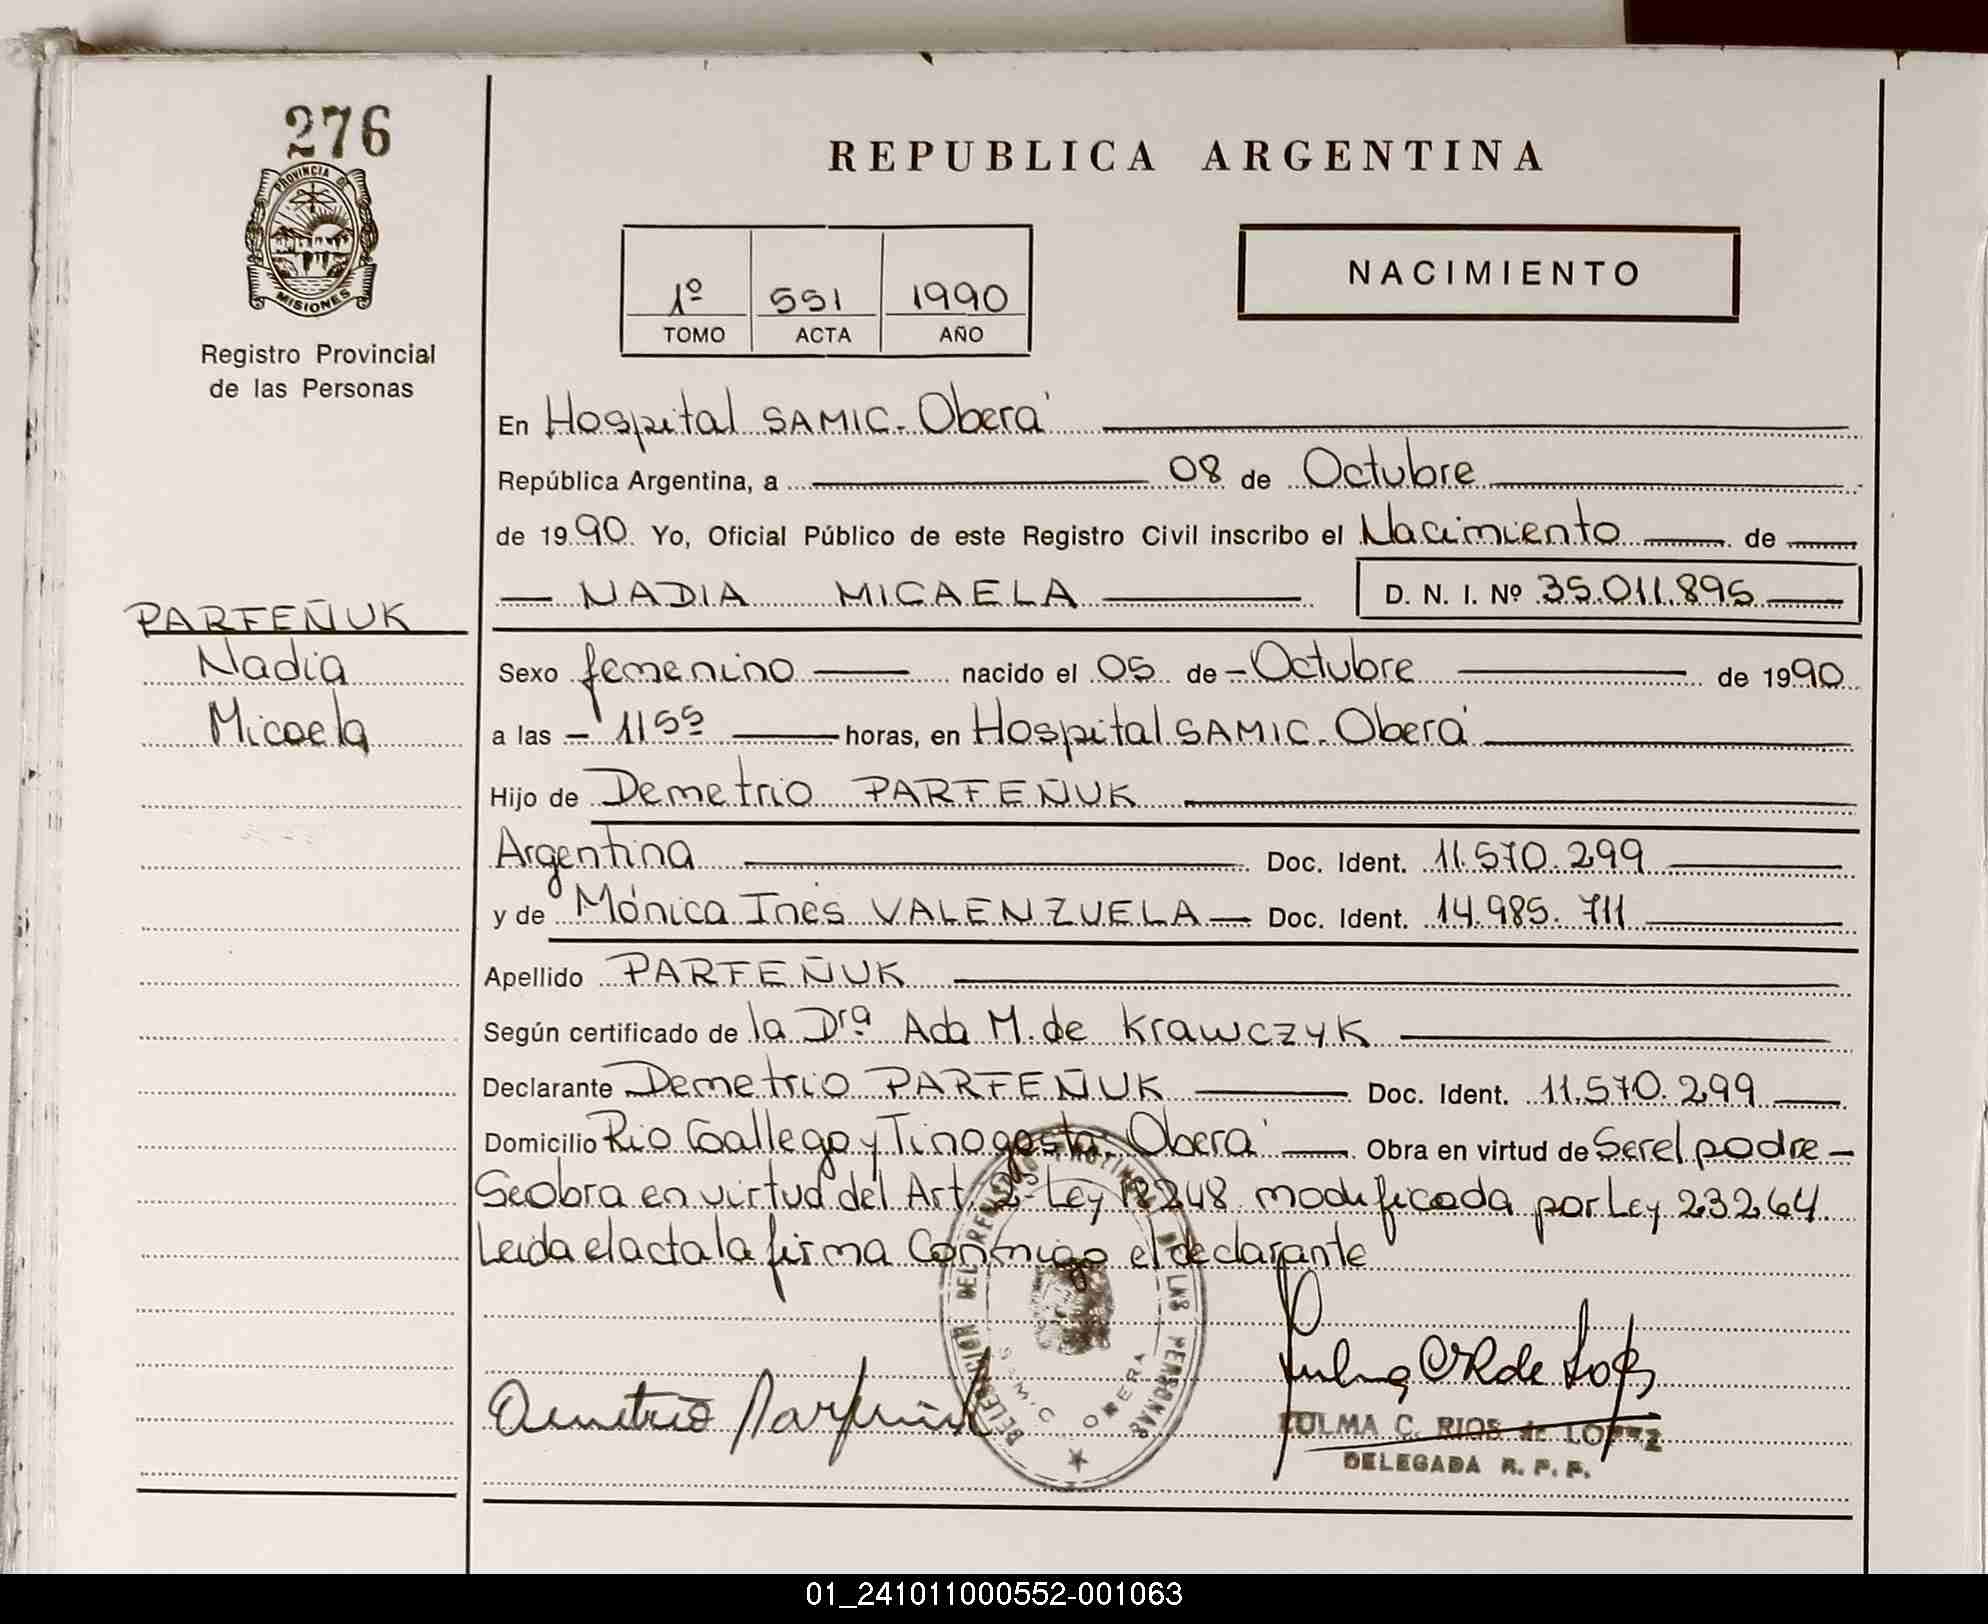 276
PROVINCIA DE
MISIONES
Registro Provincial
de las Personas
REPUBLICA ARGENTINA
1º 551 1990
TOMO ACTA AÑO
NACIMIENTO
En Hospital SAMIC. Oberá
República Argentina, a 08 de Octubre
de 1990 Yo, Oficial Público de este Registro Civil inscribo el Nacimiento de
NADIA MICAELA D. N. I. Nº 35.011.895
PARFEÑUK
Nadia
Micaela
Sexo femenino nacido el 05 de Octubre de 1990
a las 11⁵⁵ horas, en Hospital SAMIC. Oberá
Hijo de Demetrio PARFEÑUK
Argentina Doc. Ident. 11.570.299
y de Mónica Inés VALENZUELA Doc. Ident. 14.985.711
Apellido PARFEÑUK
Según certificado de la Drª Ada M. de Krawczyk
Declarante Demetrio PARFEÑUK Doc. Ident. 11.570.299
Domicilio Rio Gallego y Tinogasta. Oberá Obra en virtud de Ser el padre
Se obra en virtud del Art. 2º Ley 18248 modificada por Ley 23264.
Leida el acta la firma Conmigo el declarante
DELEGACION DEL REGISTRO PROVINCIAL DE LAS PERSONAS
SAMIC OBERA
Demetrio Parfeñuk
Zulma C R de Lopez
ZULMA C. RIOS de LOPEZ
DELEGADA R. P. P.
01_241011000552-001063